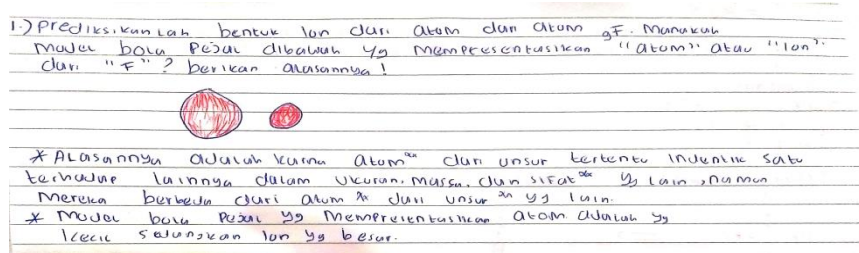 1.) Prediksikanlah bentuk Ion dari atom dan atom 9F. Manakah
Model bola Pejal dibawah yg Mempresentasikan "atom" atau "Ion".
dari "F"? berikan alasannya!
* Alasannya adalah karna atom²ⁿ dari unsur tertentu Indentik satu
terhadap lainnya dalam Ukuran, Massa, dan sifat²ⁿ yg lain, namun
Mereka berbeda dari atom²ⁿ dari unsur²ⁿ yg lain.
* Model bola Pejal yg Mempresentasikan atom adalah yg
kecil sedangkan Ion yg besar.